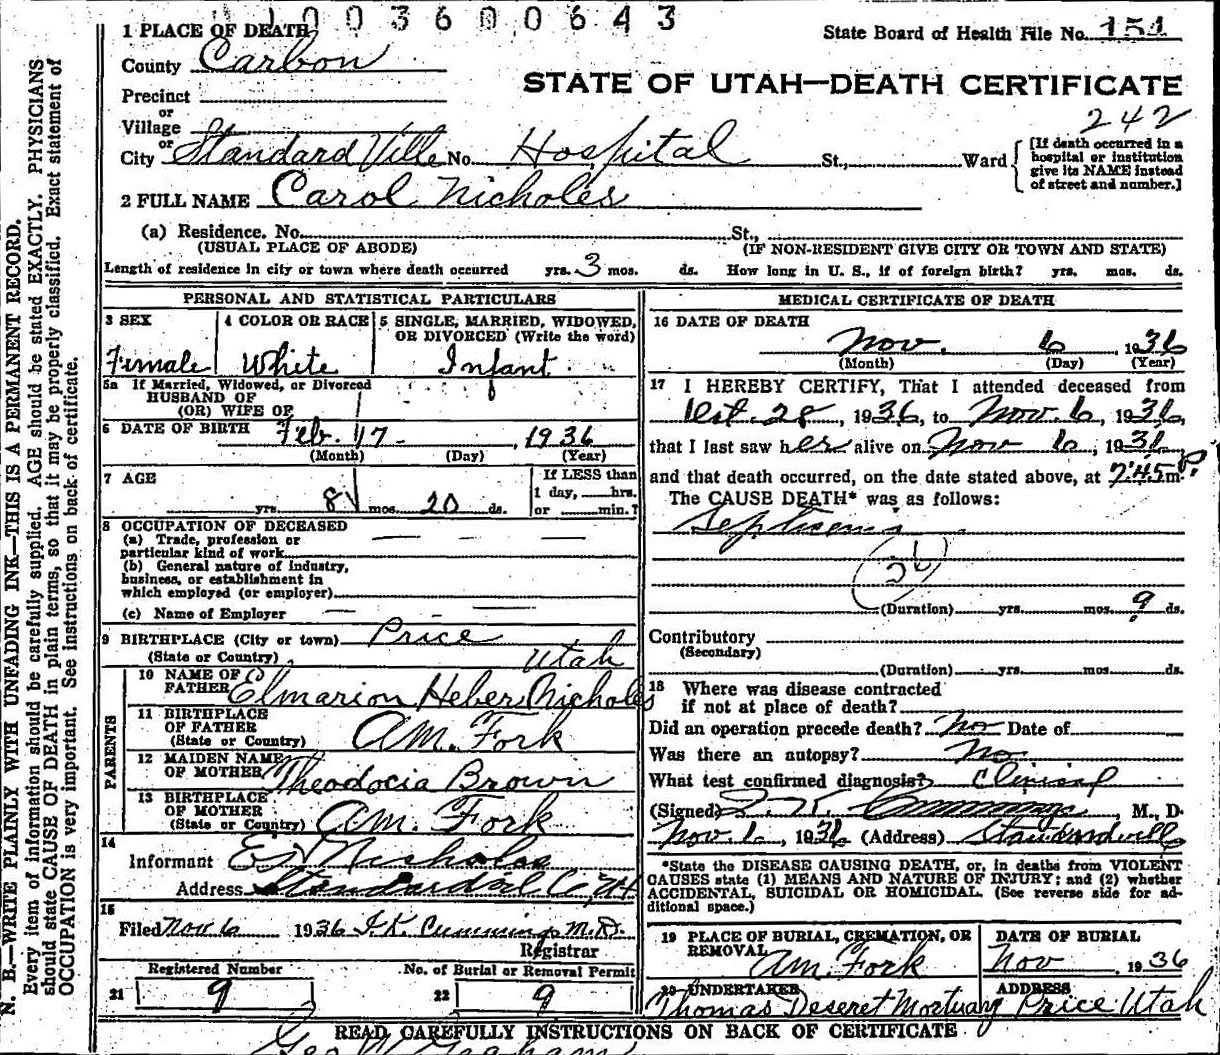 1003600643
1 PLACE OF DEATH
State Board of Health File No. 151
County Carbon
STATE OF UTAH—DEATH CERTIFICATE
Precinct
or
Village
242
or
City Standard Ville No. Hospital St., Ward
[If death occurred in a hospital or institution give its NAME instead of street and number.]
2 FULL NAME Carol Nicholes
(a) Residence. No. St.,
(USUAL PLACE OF ABODE) (IF NON-RESIDENT GIVE CITY OR TOWN AND STATE)
Length of residence in city or town where death occurred yrs. 3 mos. ds. How long in U. S., if of foreign birth? yrs. mos. ds.
PERSONAL AND STATISTICAL PARTICULARS
3 SEX 4 COLOR OR RACE 5 SINGLE, MARRIED, WIDOWED,
OR DIVORCED (Write the word)
Female White Infant
5a If Married, Widowed, or Divorced
HUSBAND OF
(OR) WIFE OF
6 DATE OF BIRTH Feb. 17 - , 1936
(Month) (Day) (Year)
7 AGE If LESS than
yrs. 8 mos. 20 ds. 1 day, hrs.
or min.?
8 OCCUPATION OF DECEASED
(a) Trade, profession or
particular kind of work
(b) General nature of industry,
business, or establishment in
which employed (or employer)
(c) Name of Employer
9 BIRTHPLACE (City or town) Price
(State or Country) Utah
PARENTS
10 NAME OF
FATHER Elmarion Heber Nicholes
11 BIRTHPLACE
OF FATHER
(State or Country) Am. Fork
12 MAIDEN NAME
OF MOTHER Theodocia Brown
13 BIRTHPLACE
OF MOTHER
(State or Country) Am. Fork
14
Informant E H Nicholes
Address
15
Filed Nov 6 1936 J.K. Cummings M.D.
Registrar
Registered Number No. of Burial or Removal Permit
21 9 22 9
MEDICAL CERTIFICATE OF DEATH
16 DATE OF DEATH
Nov. 6, 1936
(Month) (Day) (Year)
17 I HEREBY CERTIFY, That I attended deceased from
Oct. 28, 1936, to Nov. 6, 1936,
that I last saw her alive on Nov 6, 1936,
and that death occurred, on the date stated above, at 7:45 P m.
The CAUSE DEATH* was as follows:
Septicemia
36
(Duration) yrs. mos. 9 ds.
Contributory
(Secondary)
(Duration) yrs. mos. ds.
18 Where was disease contracted
if not at place of death?
Did an operation precede death? No Date of
Was there an autopsy? No
What test confirmed diagnosis? Clinical
(Signed) J. K. Cummings, M. D.
Nov. 6, 1936 (Address) Standardville
*State the DISEASE CAUSING DEATH, or, in deaths from VIOLENT
CAUSES state (1) MEANS AND NATURE OF INJURY; and (2) whether
ACCIDENTAL, SUICIDAL OR HOMICIDAL. (See reverse side for ad-
ditional space.)
19 PLACE OF BURIAL, CREMATION, OR
REMOVAL
Am. Fork
DATE OF BURIAL
Nov , 1936
20 UNDERTAKER ADDRESS
Thomas Deseret Mortuary Price Utah
READ CAREFULLY INSTRUCTIONS ON BACK OF CERTIFICATE
Geo W Graham
N. B.—WRITE PLAINLY WITH UNFADING INK—THIS IS A PERMANENT RECORD.
Every item of information should be carefully supplied. AGE should be stated EXACTLY. PHYSICIANS
should state CAUSE OF DEATH in plain terms, so that it may be properly classified. Exact statement of
OCCUPATION is very important. See instructions on back of certificate.